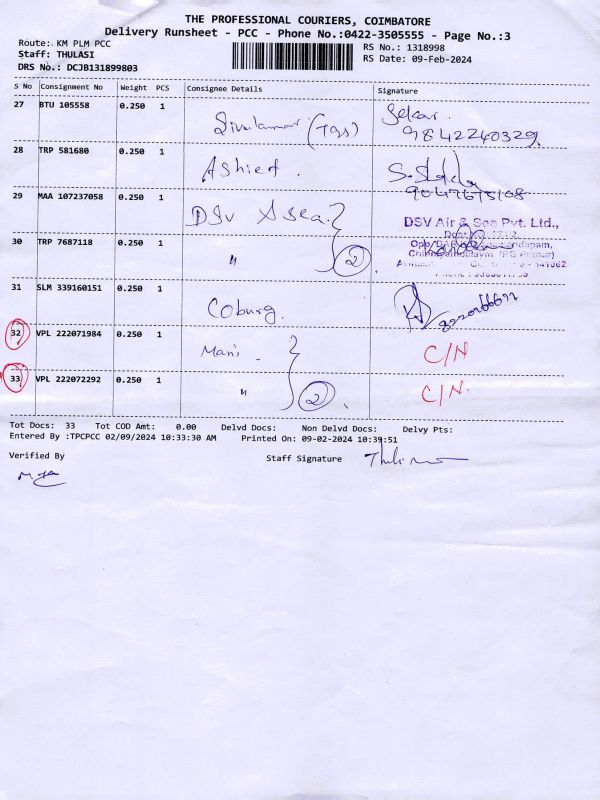 THE PROFESSIONAL COURIERS, COIMBATORE
Delivery Runsheet - PCC - Phone No.:0422-3505555 - Page No.:3
Route: KM PLM PCC
Staff: THULASI
DRS No.: DCJB131899803
RS No.: 1318998
RS Date: 09-Feb-2024
S No Consignment No Weight PCS Consignee Details Signature
27 BTU 105558 0.250 1 (Tqs) 9842240329
28 TRP 581680 0.250 1 Ashief. 9047675108
29 MAA 107237058 0.250 1 DSV Asea. DSV Air & Sea Pvt. Ltd.,
30 TRP 7687118 0.250 1 " 2
31 SLM 339160151 0.250 1 Coburg.
32 VPL 222071984 0.250 1 Mani - C/N
33 VPL 222072292 0.250 1 " 2. C/N.
Tot Docs: 33 Tot COD Amt: 0.00 Delvd Docs: Non Delvd Docs: Delvy Pts:
Entered By :TPCPCC 02/09/2024 10:33:30 AM Printed On: 09-02-2024 10:39:51
Verified By Staff Signature